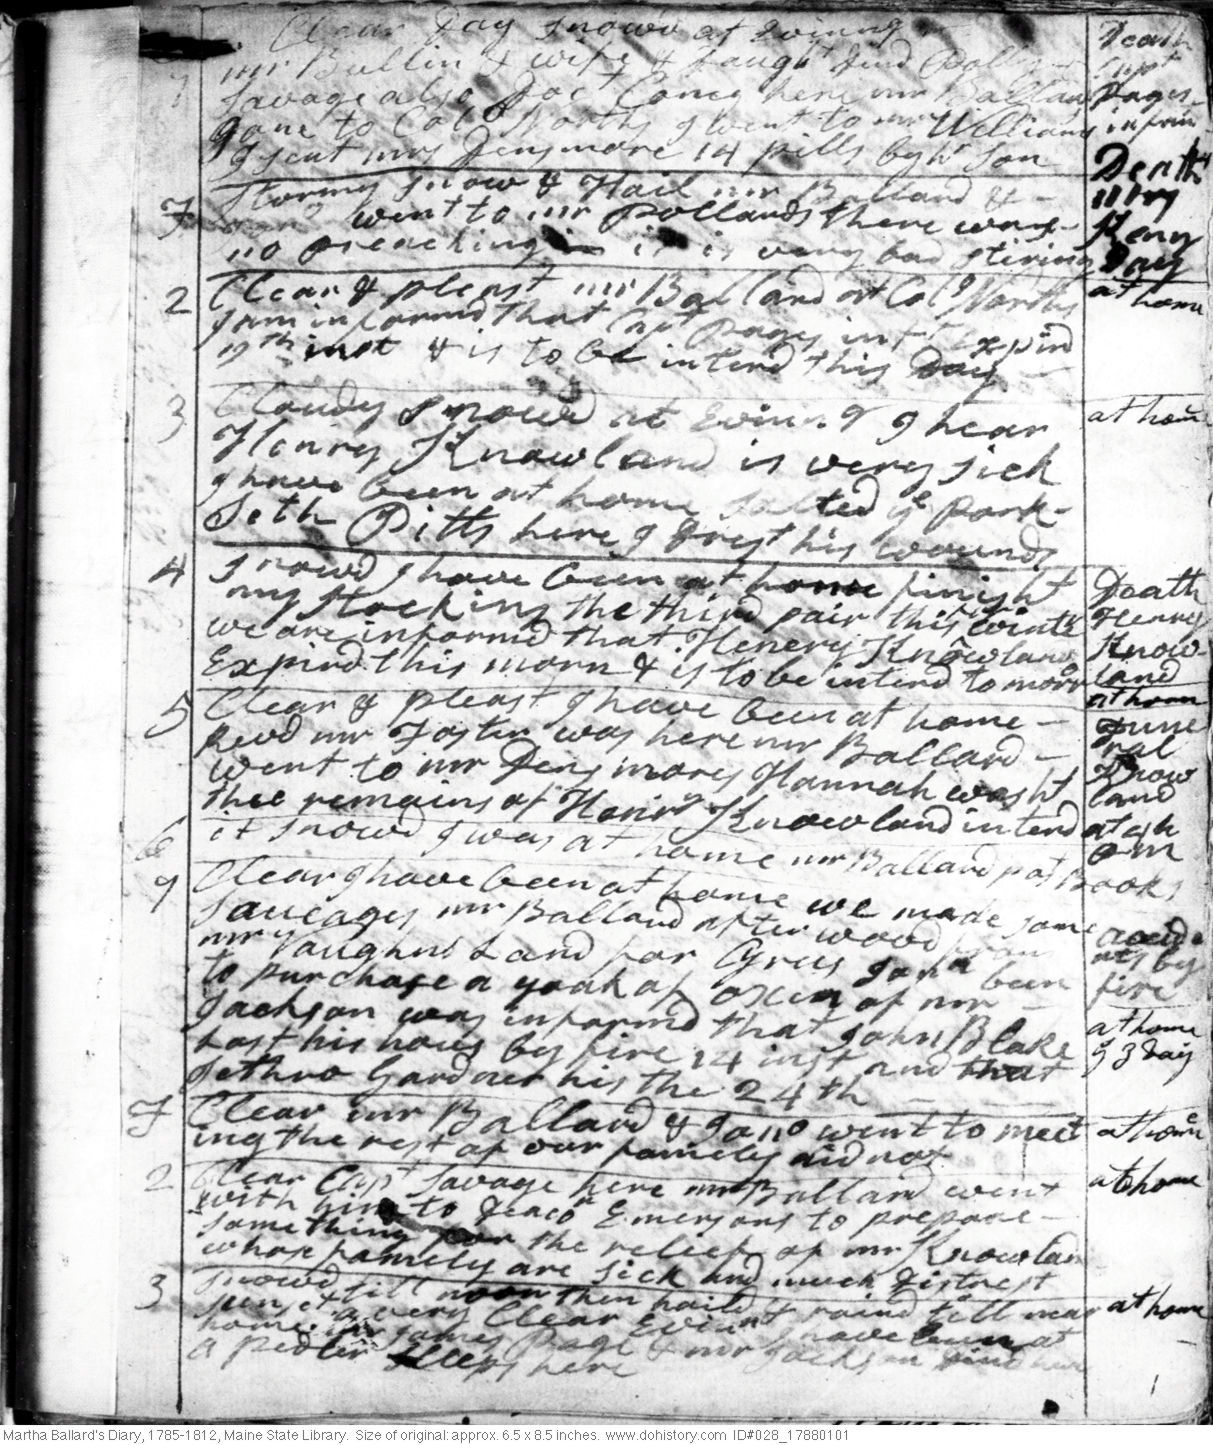 Clear Day Snowd at Evinng
mr Bullin & wife & Daught Dind Polly
Savage also Doct Coney here mr Ballard
gone to Col Norths I went to mrs Williams
I sent mrs Densmore 14 pills by hr Son
Death
Capt
Pages
infant
F Stormy Snow & Hail mr Ballard &
went to mr Pollards there was
no preaching it is very bad stiring
Death
mrs
Day
2 Clear & pleast mr Ballard at Col Norths
I am informd that Capt Pages inft Expird
12th inst & is to be interd this Day
at home
3 Cloudy Snowd at Evinng I hear
Henry Knowland is very sick
I have been at home salted ye Pork
Seth Pitts here I Drest his wounds
at home
4 Snowd I have been at home finisht
my Stocking the third pair this wintr
we are informd that Henery Knowland
Expird this morn & is to be interd to morw
Death
Henry
Know
land
at home
5 Clear & pleast I have been at home
Revd mr Foster was here mr Ballard
went to mr Densmores Hannah washt
thee remains of Henry Knowland interd
Fune
ral
Know
land
at home
6 it snowd I was at home mr Ballard pos Books
7 Clear I have been at home we made some
Saucages mr Ballard after wood from
mr Vaughns Land for Cyrus Jona been
to purchase a yoak of oxen of mr
Jackson was informd that John Blake
Lost his hous by fire 14 inst and that
Jethro Gardner his the 24th
accide
nts by
fire
at home
ys 3 Day
F Clear mr Ballard & Jona went to meet
ing the rest of our famely did not
at home
2 Clear Capt Savage here mr Ballard went
with him to Deacon Emersons to prepare
something for the relief of mr Knowlan
whose famely are sick and much Distrest
at home
3 Snowd till noon then haild & raind till near
sunset a very Clear Evinnt I have been at
home mr James Page & mr Jackson Dind here
a Pedler sleeps here
at home
Martha Ballard's Diary, 1785-1812, Maine State Library. Size of original: approx. 6.5 x 8.5 inches. www.dohistory.com ID#028_17880101